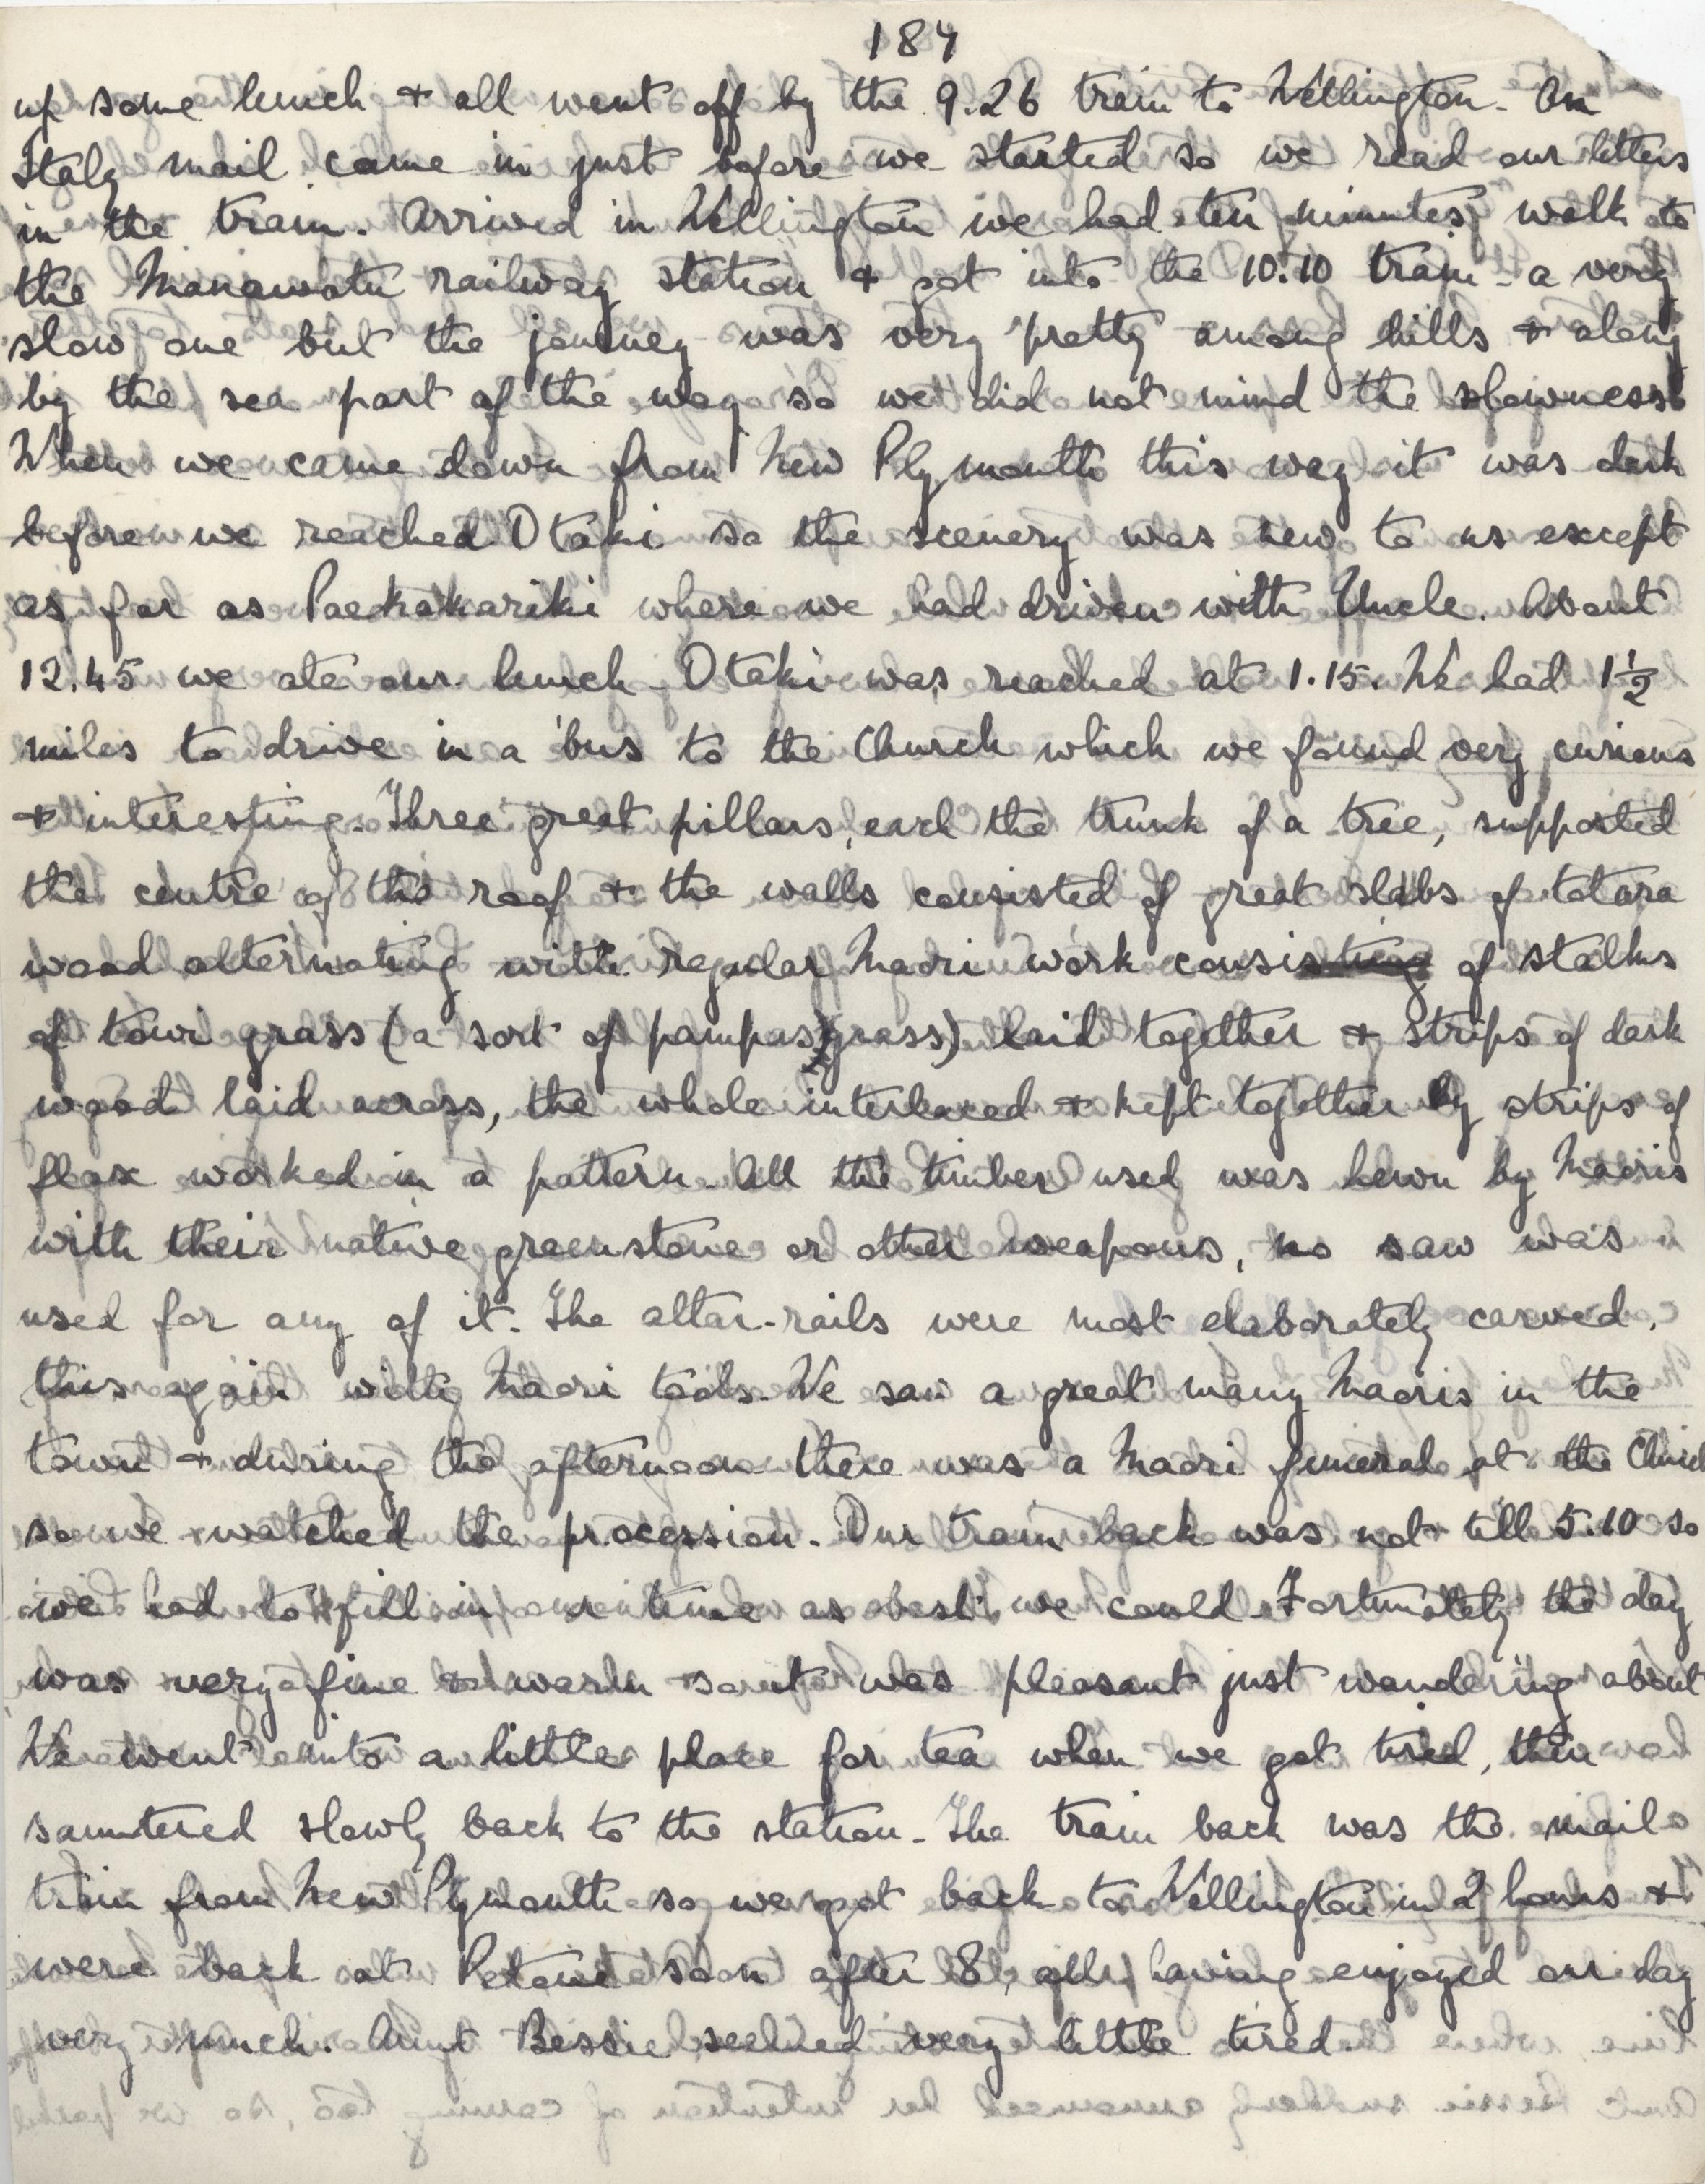 184
up some lunch & all went off by the 9.26 train to Wellington. An
Italy mail came in just before we started so we read our letters
in the train. Arrived in Wellington we had ten minutes' walk to
the Manawatu railway station & got into the 10.10 train - a very
slow one but the journey was very pretty among hills & along
by the sea part of the way so we did not mind the slowness.
When we came down from New Plymouth this way it was dark
before we reached Otaki so the scenery was new to us except
as far as Paekakariki where we had driven with Uncle. About
12.45 we ate our lunch. Otaki was reached at 1.15. We had 1½
miles to drive in a 'bus to the Church which we found very curious
& interesting. Three great pillars, each the trunk of a tree, supported
the centre of the roof & the walls consisted of great slabs of totara
wood alternating with regular Maori work consisting of stalks
of towi grass (a sort of pampas grass) laid together & strips of dark
wood laid across, the whole interlaced & kept together by strips of
flax worked in a pattern. All the timber used was hewn by Maoris
with their native greenstone or other weapons, no saw was
used for any of it. The altar-rails were most elaborately carved,
this again with Maori tools. We saw a great many Maoris in the
town & during the afternoon there was a Maori funeral at the Church
so we watched the procession. Our train back was not till 5.10 so
we had to fill in our time as best we could. Fortunately the day
was very fine & warm so it was pleasant just wandering about
We went into a little place for tea when we got tired, then
sauntered slowly back to the station. The train back was the mail
train from New Plymouth so we got back to Wellington in 2 hours &
were back at Petone soon after 8, all having enjoyed our day
very much. Aunt Bessie seemed very little tired.